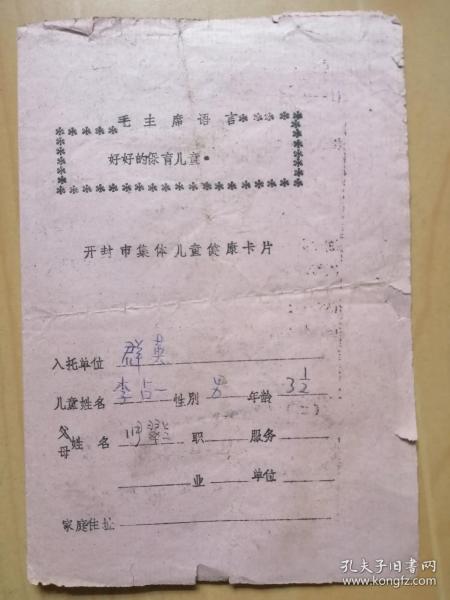 毛主席语言
好好的保育儿童。
开封市集体儿童健康卡片
入托单位 群英
儿童姓名 李占一 性别 男 年龄 3½
父母姓名 职 服务
业 单位
家庭住址
孔夫子旧书网
www.kongfz.com